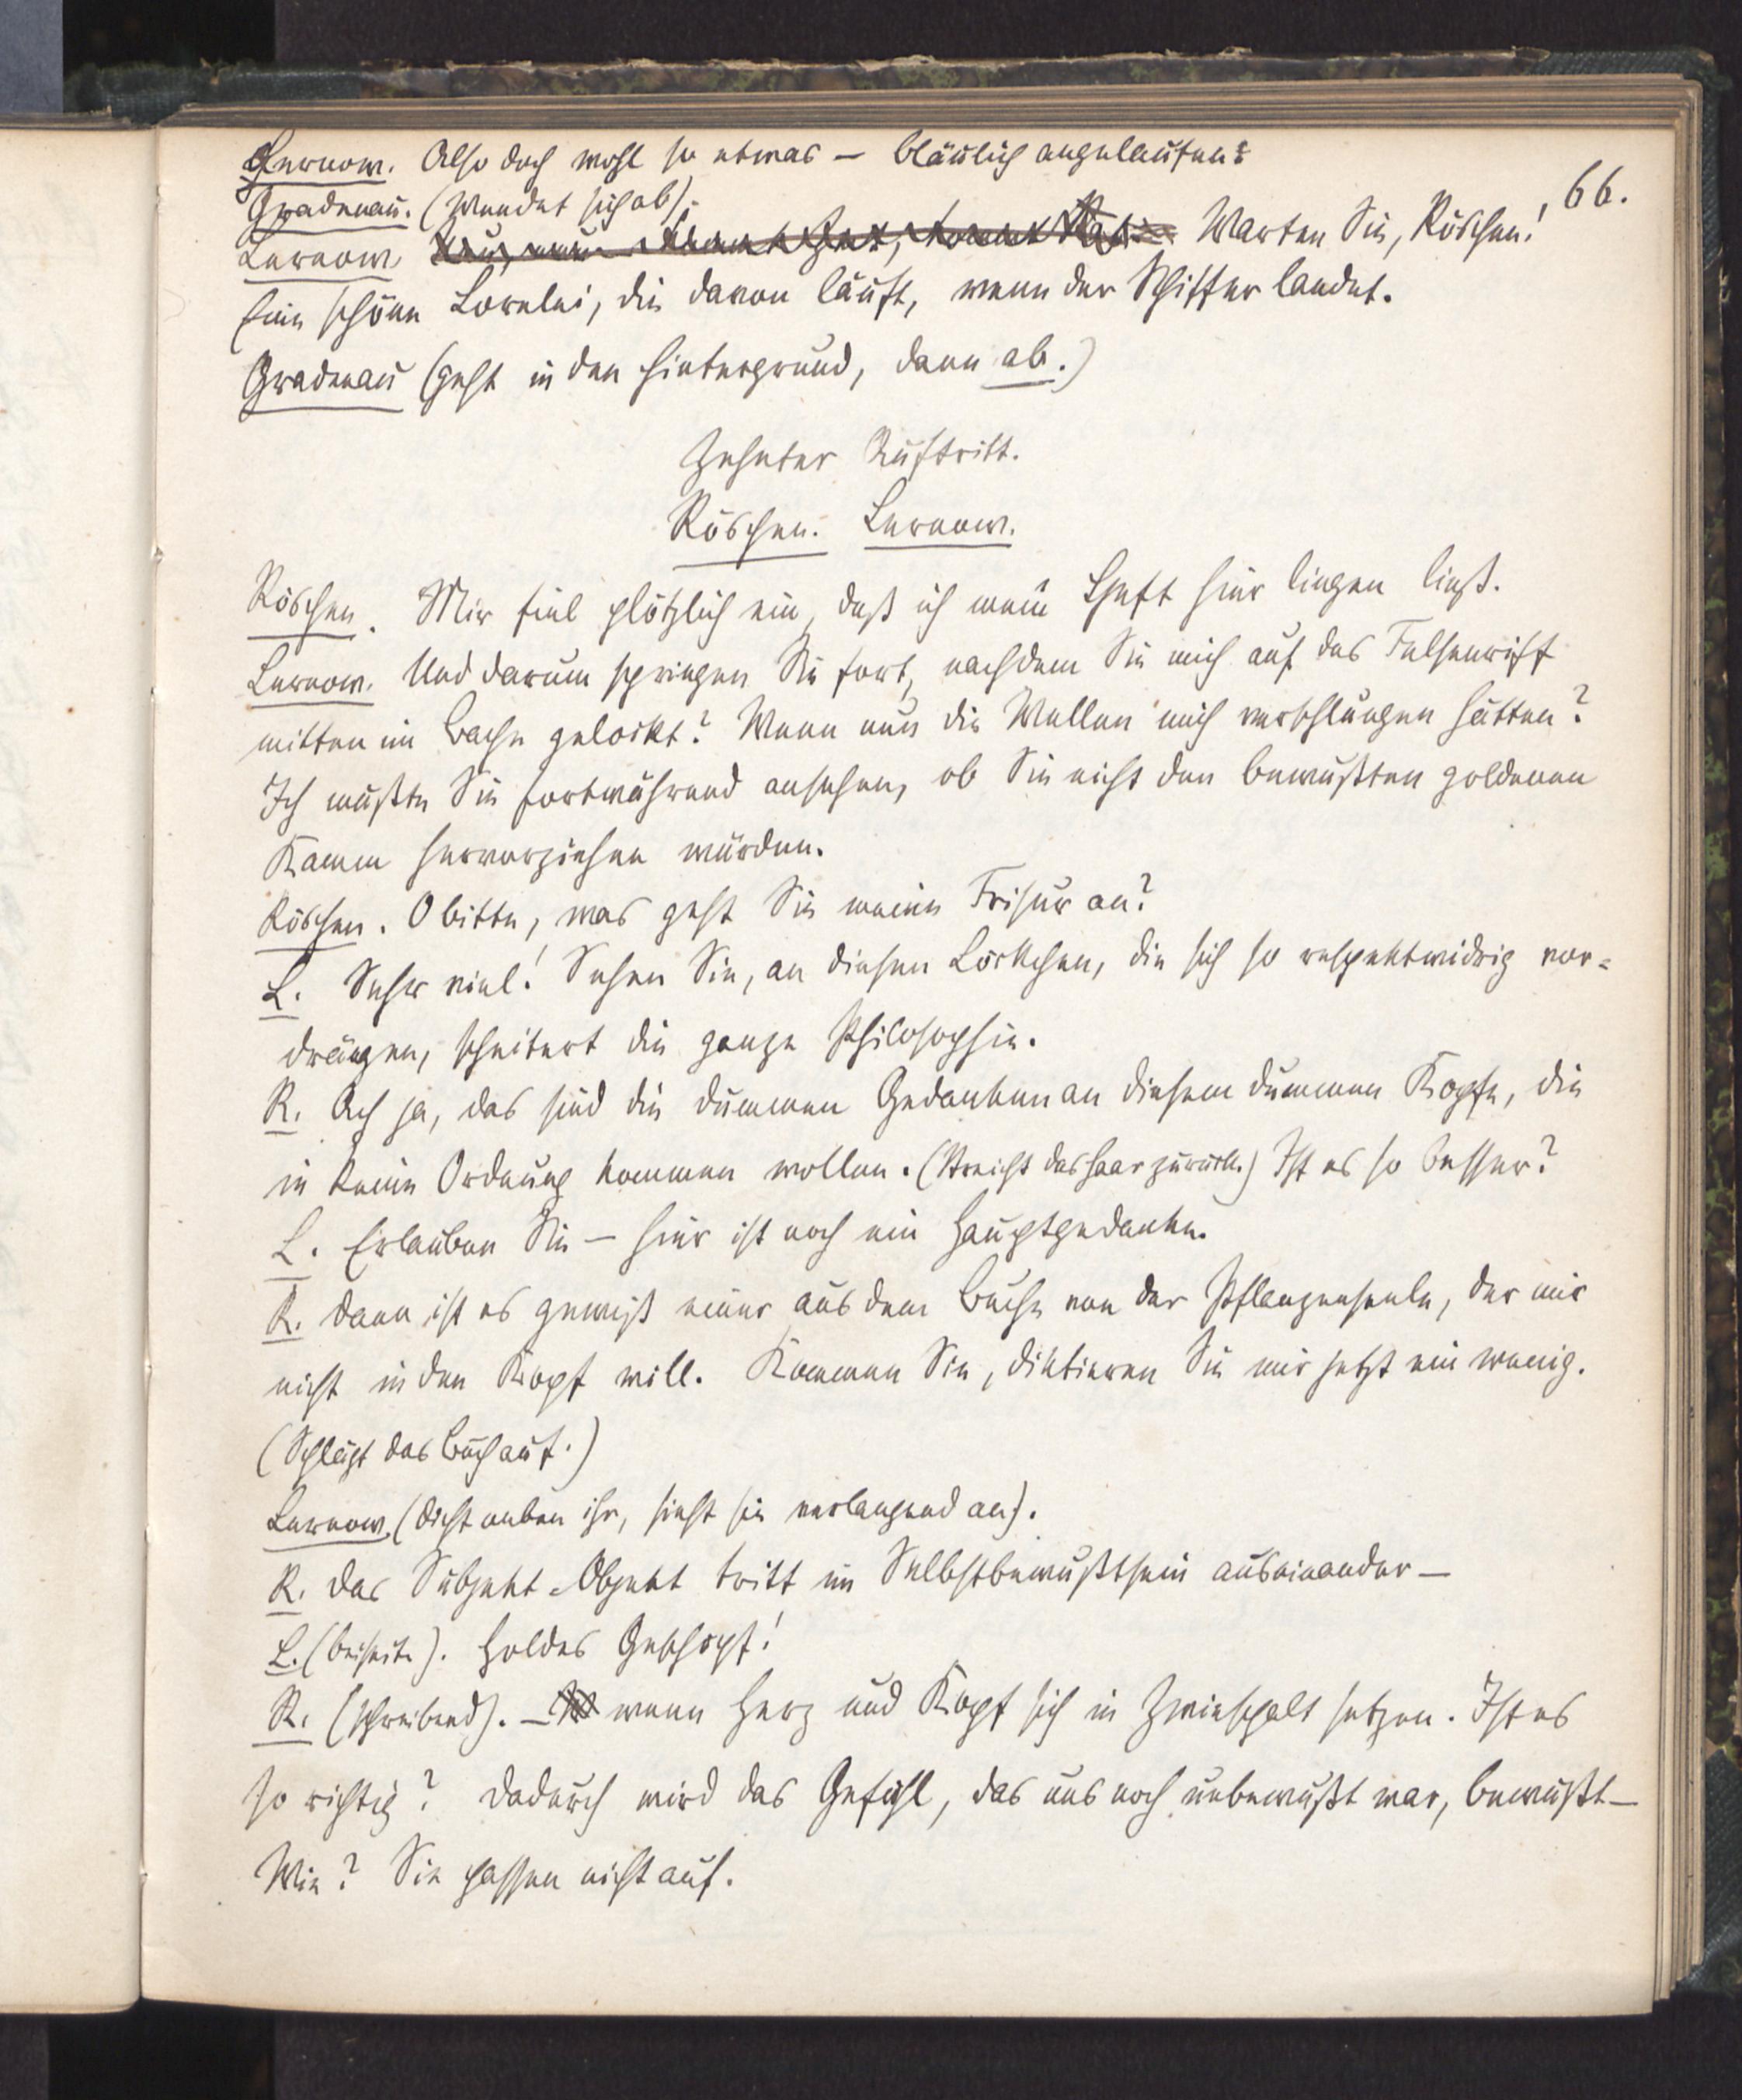 Lernow. Also doch wohl so etwas — bläulich angelaufen?
66.
Gradenau. (Wendet sich ab).
Lernow Nun, nun kommt Zeit, kommt Rat. Warten Sie, Röschen!
Eine schöne Lorelei, die davon läuft, wenn der Schiffer landet.
Gradenau (geht in den Hintergrund, dann ab.)
Zehnter Auftritt.
Röschen. Lernow.
Röschen. Mir fiel plötzlich ein, daß ich mein Heft hier liegen ließ.
Lernow. Und darum springen Sie fort, nachdem Sie mich auf das Felsenriff
mitten im Bache gelockt? Wenn nun die Wellen mich verschlungen hätten?
Ich mußte Sie fortwährend ansehen, ob Sie nicht den bewußten goldenen
Kamm hervorziehen würden.
Röschen. O bitte, was geht Sie meine Frisur an?
L. Sehr viel! Sehen Sie, an diesen Löckchen, die sich so respektwidrig vor-
drängen, scheitert die ganze Philosophie.
R. Ach ja, das sind die dummen Gedanken an diesem dummen Kopfe, die
in keine Ordnung kommen wollen. (Streicht das Haar zurück.) Ist es so besser?
L. Erlauben Sie — hier ist noch ein Hauptgedanke.
R. Dann ist es gewiß einer aus dem Buche von der Pflanzenseele, der mir
nicht in den Kopf will. Kommen Sie, diktieren Sie mir jetzt ein wenig.
(Schlägt das Buch auf.)
Lernow. (dicht neben ihr, sieht sie verlangend an).
R. Das Subjekt-Objekt tritt im Selbstbewußtsein auseinander —
L. (beiseite). Holdes Geschöpf!
R. (schreibend). — wenn Herz und Kopf sich in Zwiespalt setzen. Ist es
so richtig? Dadurch wird das Gefühl, das uns noch unbewußt war, bewußt —
Wie? Sie passen nicht auf.